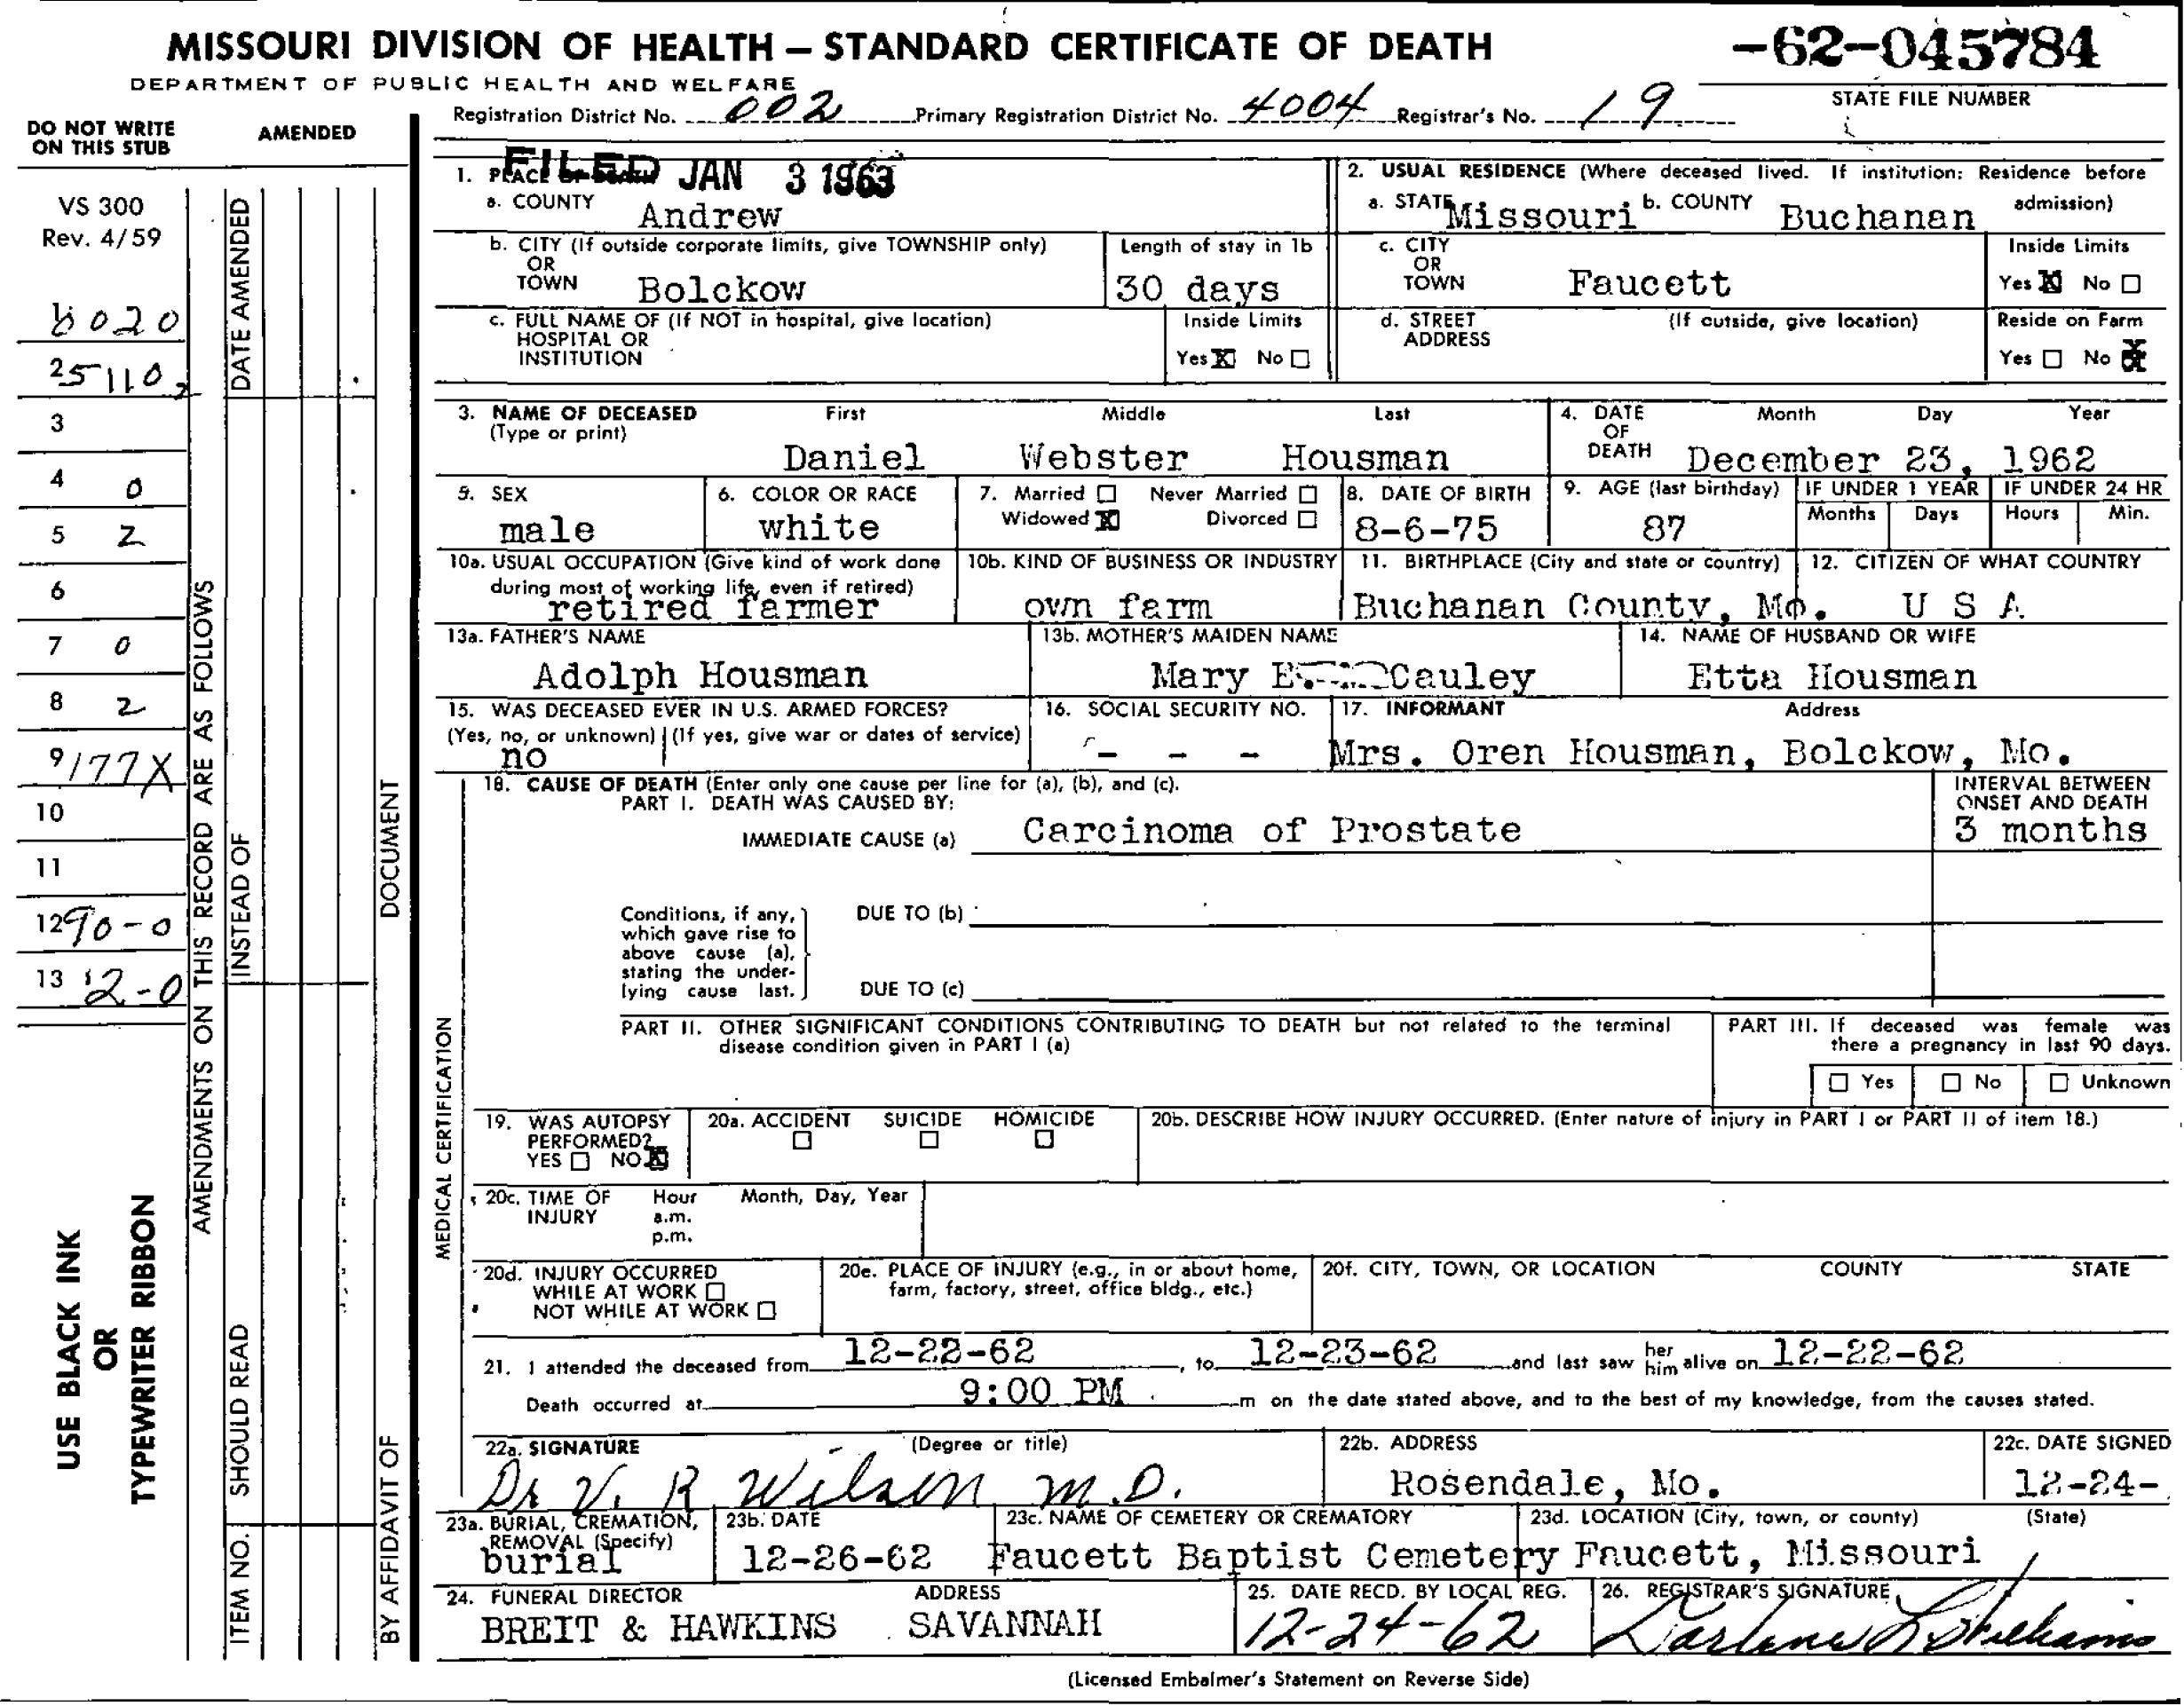 MISSOURI DIVISION OF HEALTH — STANDARD CERTIFICATE OF DEATH
-62-045784
DEPARTMENT OF PUBLIC HEALTH AND WELFARE
STATE FILE NUMBER
Registration District No. 002 Primary Registration District No. 4004 Registrar's No. 19
DO NOT WRITE ON THIS STUB
AMENDED
VS 300
Rev. 4/59
6020
2 5110
3
4 0
5 2
6
7 0
8 2
9 177X
10
11
12 90-0
13 2-0
USE BLACK INK
OR
TYPEWRITER RIBBON
AMENDMENTS ON THIS RECORD ARE AS FOLLOWS
DATE AMENDED
INSTEAD OF
SHOULD READ
ITEM NO.
DOCUMENT
BY AFFIDAVIT OF
FILED JAN 3 1963
1. PLACE OF DEATH
a. COUNTY Andrew
b. CITY (If outside corporate limits, give TOWNSHIP only) OR TOWN Bolckow
Length of stay in 1b 30 days
c. FULL NAME OF (If NOT in hospital, give location) HOSPITAL OR INSTITUTION
Inside Limits Yes X No
2. USUAL RESIDENCE (Where deceased lived. If institution: Residence before admission)
a. STATE Missouri b. COUNTY Buchanan
c. CITY OR TOWN Faucett
Inside Limits Yes X No
d. STREET ADDRESS (If outside, give location)
Reside on Farm Yes No X
3. NAME OF DECEASED (Type or print) First Middle Last
Daniel Webster Housman
4. DATE OF DEATH Month Day Year
December 23, 1962
5. SEX male
6. COLOR OR RACE white
7. Married Never Married
Widowed X Divorced
8. DATE OF BIRTH 8-6-75
9. AGE (last birthday) 87
IF UNDER 1 YEAR Months Days
IF UNDER 24 HR Hours Min.
10a. USUAL OCCUPATION (Give kind of work done during most of working life, even if retired)
retired farmer
10b. KIND OF BUSINESS OR INDUSTRY
own farm
11. BIRTHPLACE (City and state or country)
Buchanan County, Mo.
12. CITIZEN OF WHAT COUNTRY
U S A
13a. FATHER'S NAME
Adolph Housman
13b. MOTHER'S MAIDEN NAME
Mary E Cauley
14. NAME OF HUSBAND OR WIFE
Etta Housman
15. WAS DECEASED EVER IN U.S. ARMED FORCES?
(Yes, no, or unknown) (If yes, give war or dates of service)
no
16. SOCIAL SECURITY NO.
- - -
17. INFORMANT Address
Mrs. Oren Housman, Bolckow, Mo.
MEDICAL CERTIFICATION
18. CAUSE OF DEATH (Enter only one cause per line for (a), (b), and (c).
PART I. DEATH WAS CAUSED BY:
IMMEDIATE CAUSE (a) Carcinoma of Prostate
INTERVAL BETWEEN ONSET AND DEATH
3 months
Conditions, if any, which gave rise to above cause (a), stating the under- lying cause last.
DUE TO (b)
DUE TO (c)
PART II. OTHER SIGNIFICANT CONDITIONS CONTRIBUTING TO DEATH but not related to the terminal disease condition given in PART I (a)
PART III. If deceased was female was there a pregnancy in last 90 days.
Yes No Unknown
19. WAS AUTOPSY PERFORMED? YES NO X
20a. ACCIDENT SUICIDE HOMICIDE
20b. DESCRIBE HOW INJURY OCCURRED. (Enter nature of injury in PART I or PART II of item 18.)
20c. TIME OF INJURY Hour a.m. p.m. Month, Day, Year
20d. INJURY OCCURRED WHILE AT WORK NOT WHILE AT WORK
20e. PLACE OF INJURY (e.g., in or about home, farm, factory, street, office bldg., etc.)
20f. CITY, TOWN, OR LOCATION COUNTY STATE
21. I attended the deceased from 12-22-62, to 12-23-62 and last saw her him alive on 12-22-62
Death occurred at 9:00 PM m on the date stated above, and to the best of my knowledge, from the causes stated.
22a. SIGNATURE (Degree or title)
Dr V. R Wilson M.D.
22b. ADDRESS
Rosendale, Mo.
22c. DATE SIGNED
12-24-
23a. BURIAL, CREMATION, REMOVAL (Specify)
burial
23b. DATE
12-26-62
23c. NAME OF CEMETERY OR CREMATORY
Faucett Baptist Cemetery
23d. LOCATION (City, town, or county) (State)
Faucett, Missouri
24. FUNERAL DIRECTOR ADDRESS
BREIT & HAWKINS SAVANNAH
25. DATE RECD. BY LOCAL REG.
12-24-62
26. REGISTRAR'S SIGNATURE
Darlene L Williams
(Licensed Embalmer's Statement on Reverse Side)